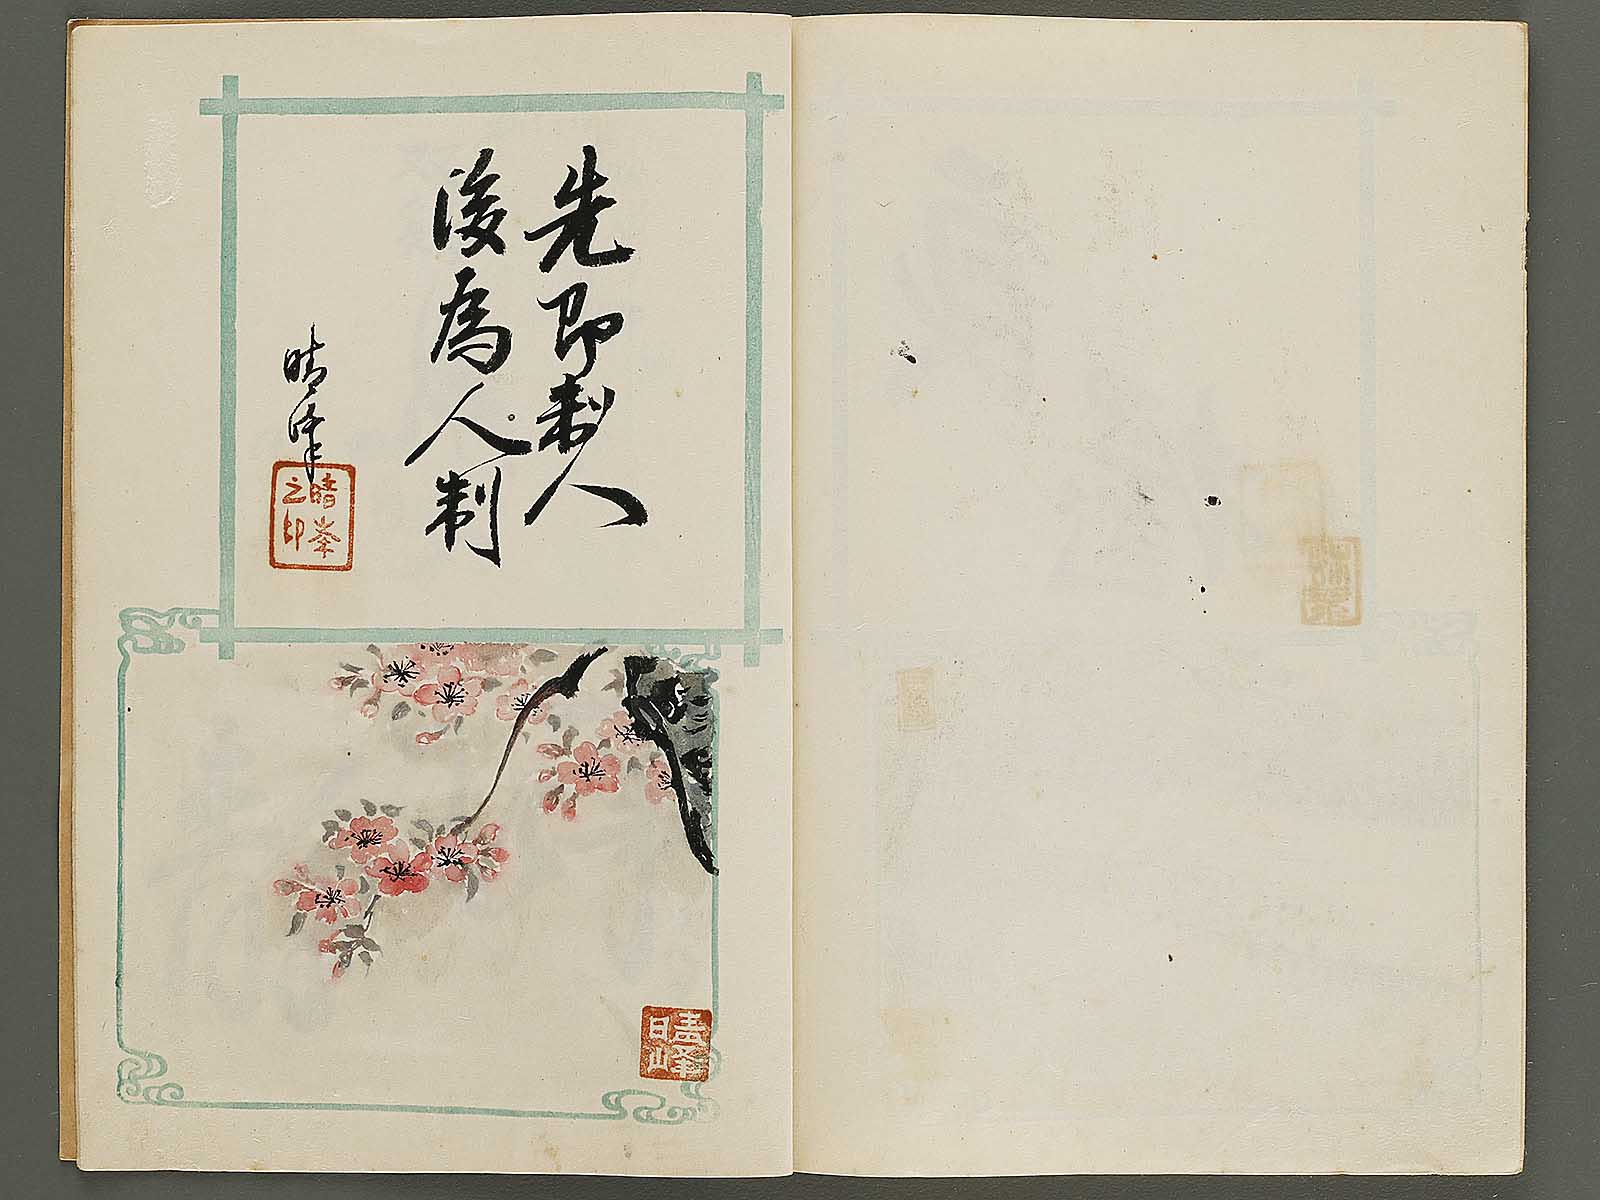 先即制人
後為人制
晴峰
晴峯之印